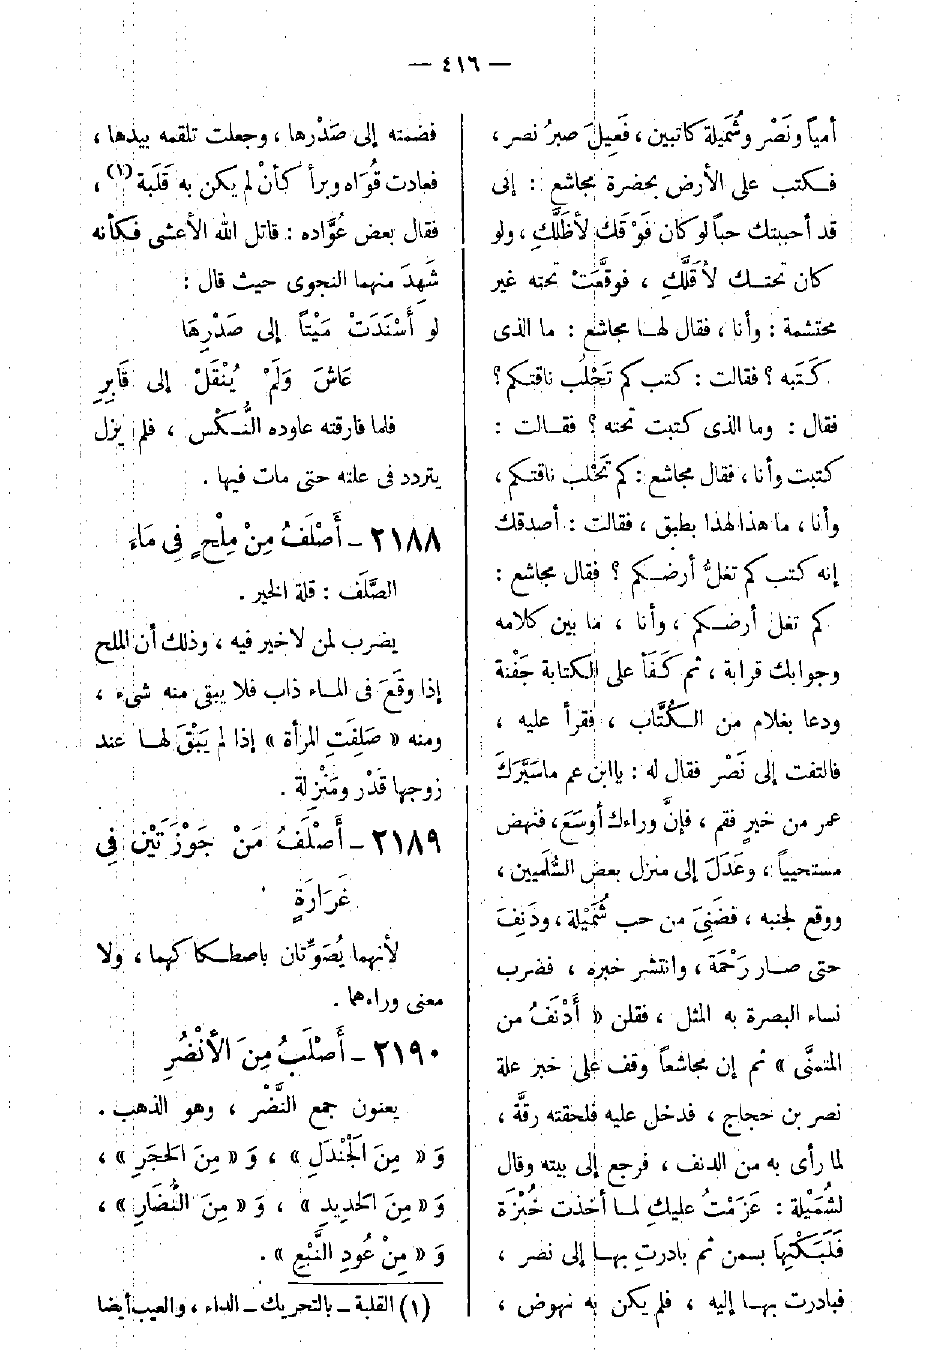 — ٤١٦ —
أمياً ونَصْر وشُمَيلة كاتبين ، فَعِيلَ صبرُ نصر ،
فكتب على الأرض بحضرة مجاشع : إنى
قد أحببتك حباً لو كان فَوْقَك لأظَلَّكِ ، ولو
كان تحتك لأقلَّكِ ، فوقَّعَتْ تحته غير
محتشمة : وأنا ، فقال لها مجاشع : ما الذى
كَتَبه ؟ فقالت : كتب كم تَحْلُب ناقتكم ؟
فقال : وما الذى كتبت تحته ؟ فقالت :
كتبت وأنا ، فقال مجاشع : كم تَحْلب ناقتكم ،
وأنا ، ما هذا لهذا بطبق ، فقالت : أصدقك
إنه كتب كم تغلُّ أرضكم ؟ فقال مجاشع :
كم تغل أرضكم ، وأنا ، ما بين كلامه
وجوابك قرابة ، ثم كَفَأ على الكتابة جَفْنة
ودعا بغلام من الكُتَّاب ، فقرأ عليه ،
فالتفت إلى نَصْر فقال له : يا ابن عم ماسَيَّرَكَ
عمر من خيرٍ فقم ، فإنَّ وراءك أوسَعَ ، فنهض
مستحيياً ، وعَدَلَ إلى منزل بعض السُّلَميين ،
ووقع لجنبه ، فضَنِىَ من حب شُمَيْلة ، ودَنِفَ
حتى صار رَحْمَة ، وانتشر خبره ، فضرب
نساء البصرة به المثل ، فقلن « أَدْنَفُ من
المتمنَّى » ثم إن مجاشعاً وقف على خبر علة
نصر بن حجاج ، فدخل عليه فلحقته رقَّة ،
لما رأى به من الدنف ، فرجع إلى بيته وقال
لشُمَيْلة : عَزَمْتُ عليكِ لما أخذت خُبْزَة
فَلَبَكْتِهَا بسمن ثم بادرتِ بها إلى نصر ،
فبادرت بها إليه ، فلم يكن به نهوض ،
فضمته إلى صَدْرها ، وجعلت تلقمه بيدها ،
فعادت قُوَاه وبرأ كأنْ لم يكن به قَلَبة (١) ،
فقال بعض عُوَّاده : قاتل الله الأعشى فكأنه
شَهِدَ منهما النجوى حيث قال :
لو أَسْنَدَتْ مَيْتاً إلى صَدْرِهَا
عَاشَ وَلَمْ يُنْقَلْ إلى قَابِرِ
فلما فارقته عاوده النُّكْس ، فلم يزل
يتردد فى علته حتى مات فيها .
٢١٨٨ - أَصْلَفُ مِنْ مِلْحٍ فِى مَاءٍ
الصَّلَف : قلة الخير .
يضرب لمن لا خير فيه ، وذلك أن الملح
إذا وقَعَ فى الماء ذاب فلا يبقى منه شىء ،
ومنه « صَلِفَتِ المرأة » إذا لم يَبْقَ لها عند
زوجها قَدْر ومَنْزِلة .
٢١٨٩ - أَصْلَفُ مَنْ جَوْزَتَيْنِ فِى
غَرَارَةٍ
لأنهما يُصَوِّتان باصطكاكهما ، ولا
معنى وراءهما .
٢١٩٠ - أَصْلَبُ مِنَ الأَنْضُرِ
يعنون جمع النَّضْر ، وهو الذهب .
وَ « مِنَ الْجَنْدَلِ » ، وَ « مِنَ الْحَجَرِ » ،
وَ « مِنَ الحَدِيدِ » ، وَ « مِنَ النُّضَارِ » ،
وَ « مِنْ عُودِ النَّبْعِ » .
(١) القلبة - بالتحريك - الداء ، والعيب أيضا